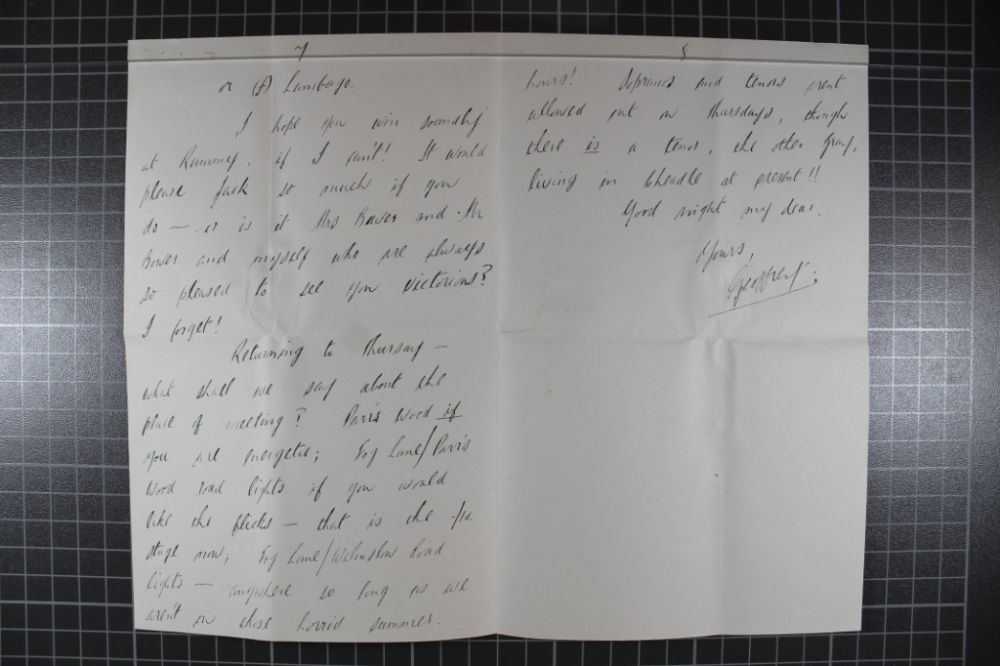 7
or (f) Lumbago.
I hope you win soundly
at Rummy, if I can't! It would
please Jack so much if you
do — or is it Mrs Bower and Mr
Bower and myself who are always
so pleased to see you victorious?
I forget!
Returning to Thursday —
what shall we say about the
place of meeting? Parrs Wood if
you are energetic; Fog Lane/Parrs
Wood Road lights if you would
like the flicks — that is the
stage now; Fog Lane/Wilmslow Road
lights — anywhere so long as we
aren't on those horrid summer
8
hours! Sopranos and tenors arent
allowed out on Thursdays, though
there is a tenor, the other Gray,
living in Cheadle at present!!
Good night my dear.
Yours,
Geoffrey.